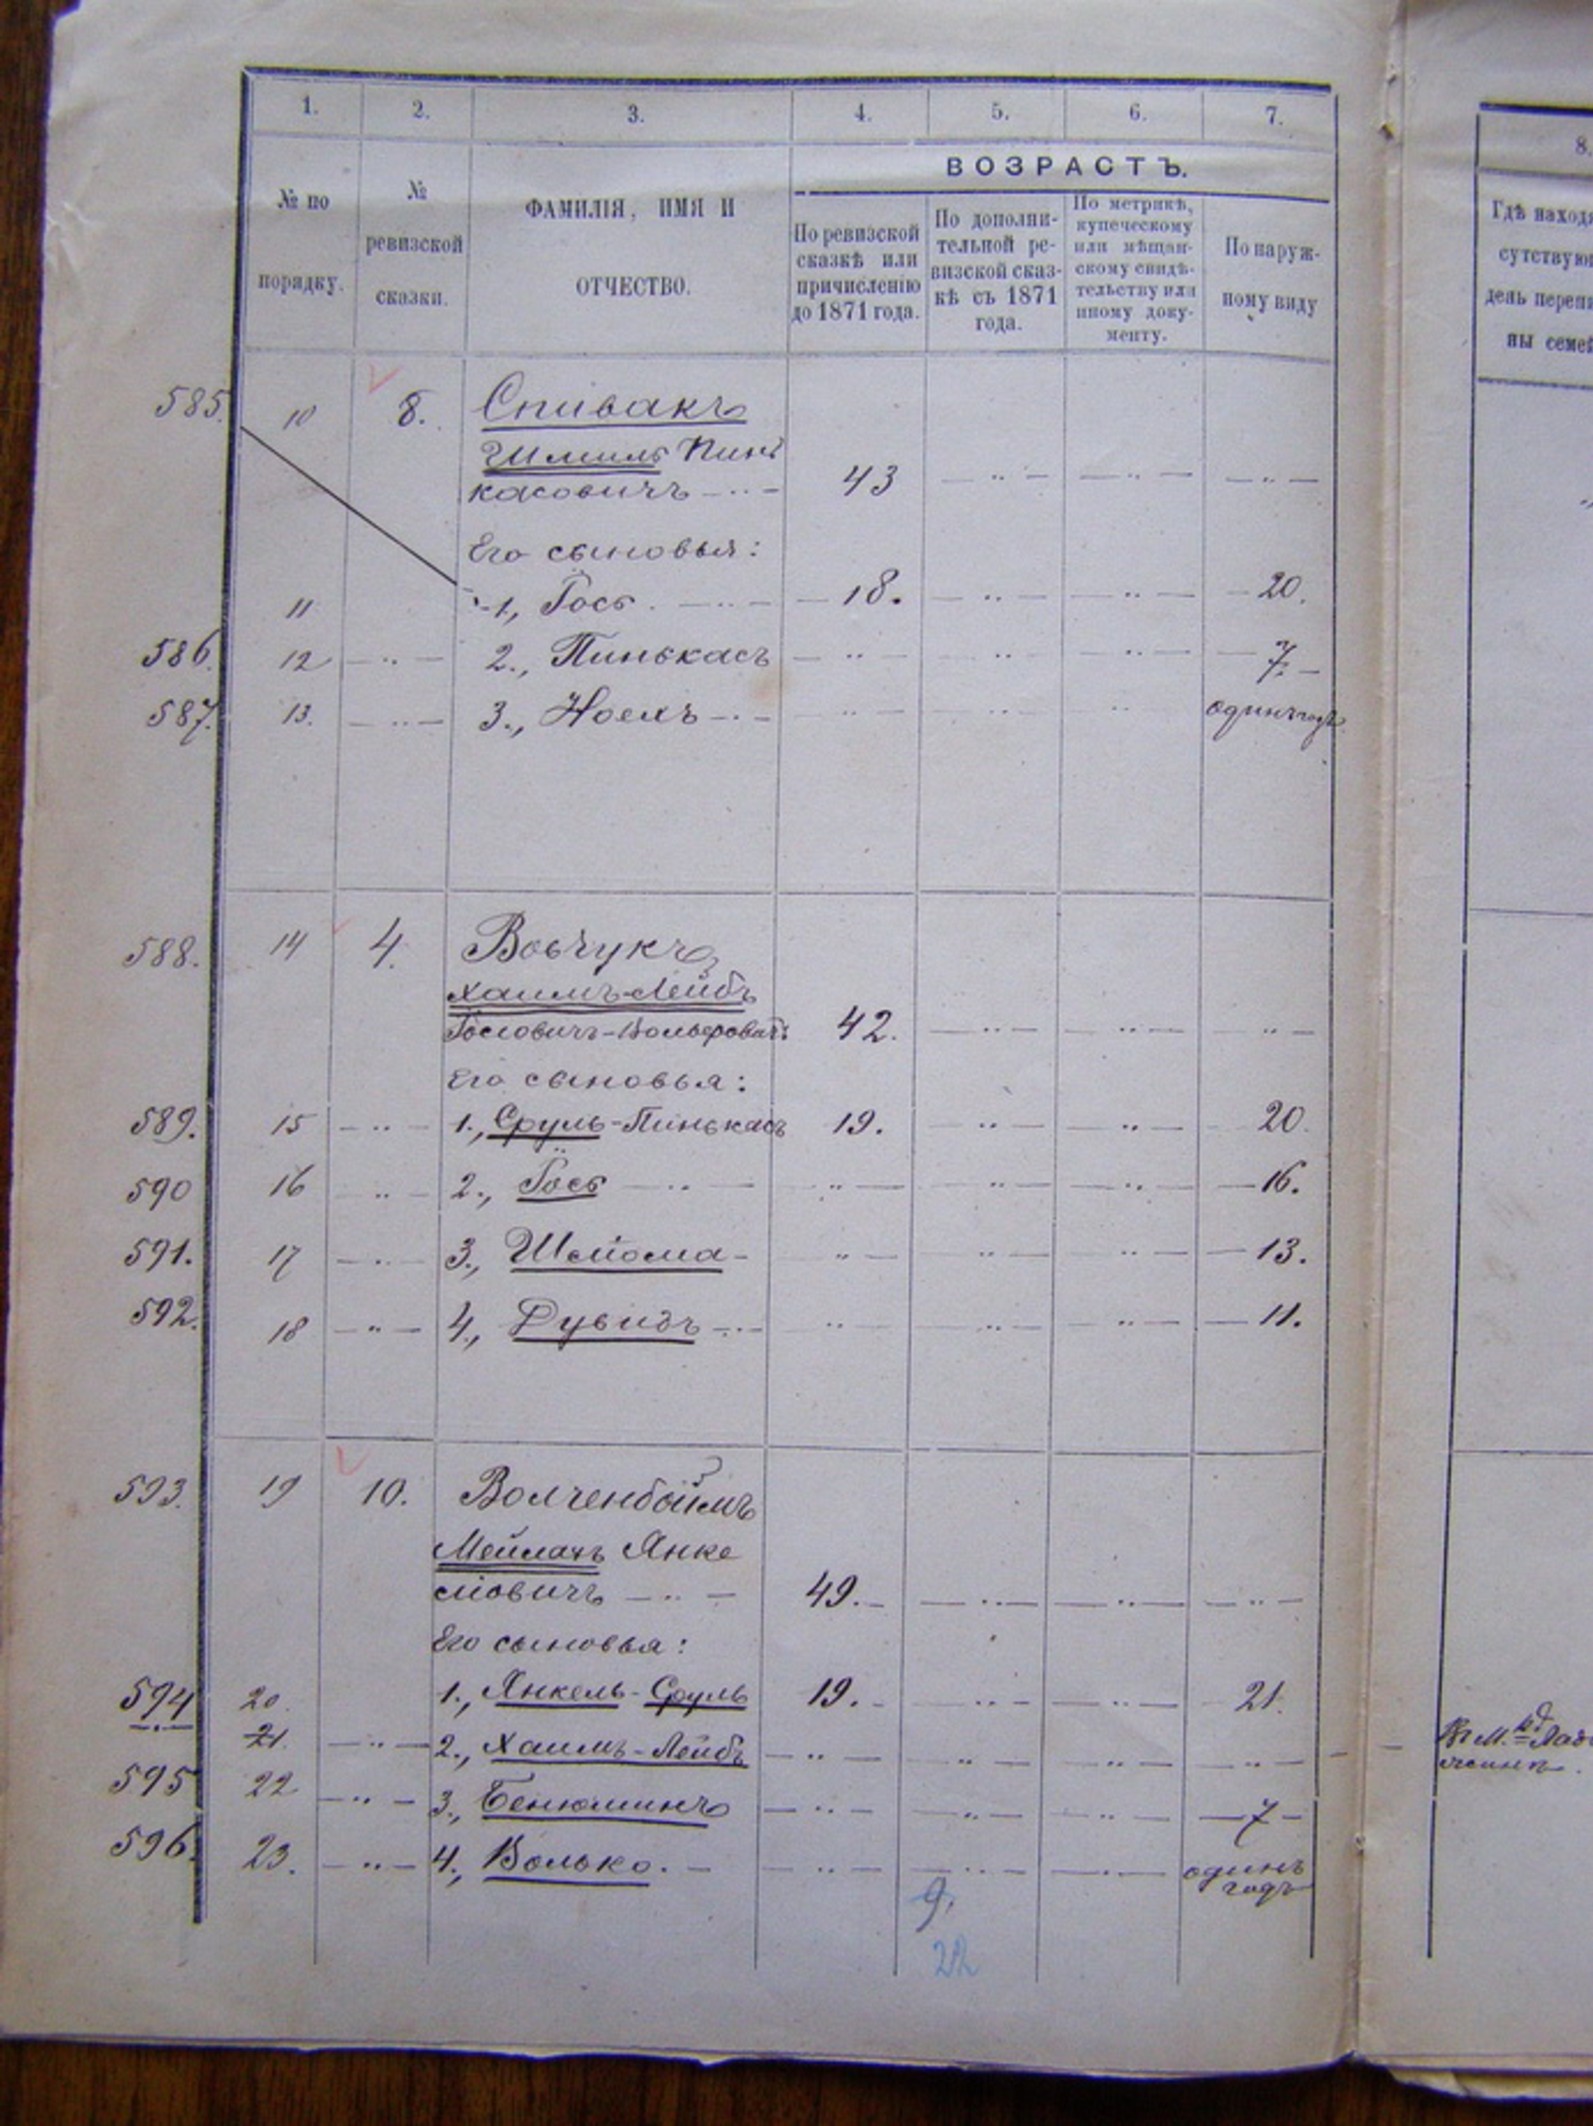 1. 2. 3. 4. 5. 6. 7.
8.
№ по порядку.
№ ревизской сказки.
ФАМИЛІЯ, ИМЯ И ОТЧЕСТВО.
ВОЗРАСТЪ.
По ревизской сказкѣ или причисленію до 1871 года.
По дополнительной ревизской сказкѣ съ 1871 года.
По метрикѣ, купеческому или мѣщанскому свидѣтельству или иному документу.
По наружному виду
Гдѣ находя
сутствую
день перепи
ны семей
585. 10 8. Спивакъ
Шмиль Пинь
касовичъ 43
Его сыновья:
11 1., Іось 18. 20.
586. 12 2., Пинькасъ 7.
587. 13. 3., Ноехъ одинъ годъ
588. 14 4. Вовчукъ
Хаимъ-Лейбъ
Іосіовичъ-Вольфовичъ 42.
Его сыновья:
589. 15 1., Сруль-Пинькасъ 19. 20.
590 16 2., Іось 16.
591. 17 3., Шліома 13.
592. 18 4., Дувидъ 11.
593. 19 10. Волченбоймъ
Мейлахъ Янке
ліовичъ 49.
Его сыновья:
594 20. 1., Янкель-Сруль 19. 21.
21. 2., Хаимъ-Лейбъ
595 22 3., Бенюминъ 7
596. 23. 4., Волько. одинъ
годъ
9.
22